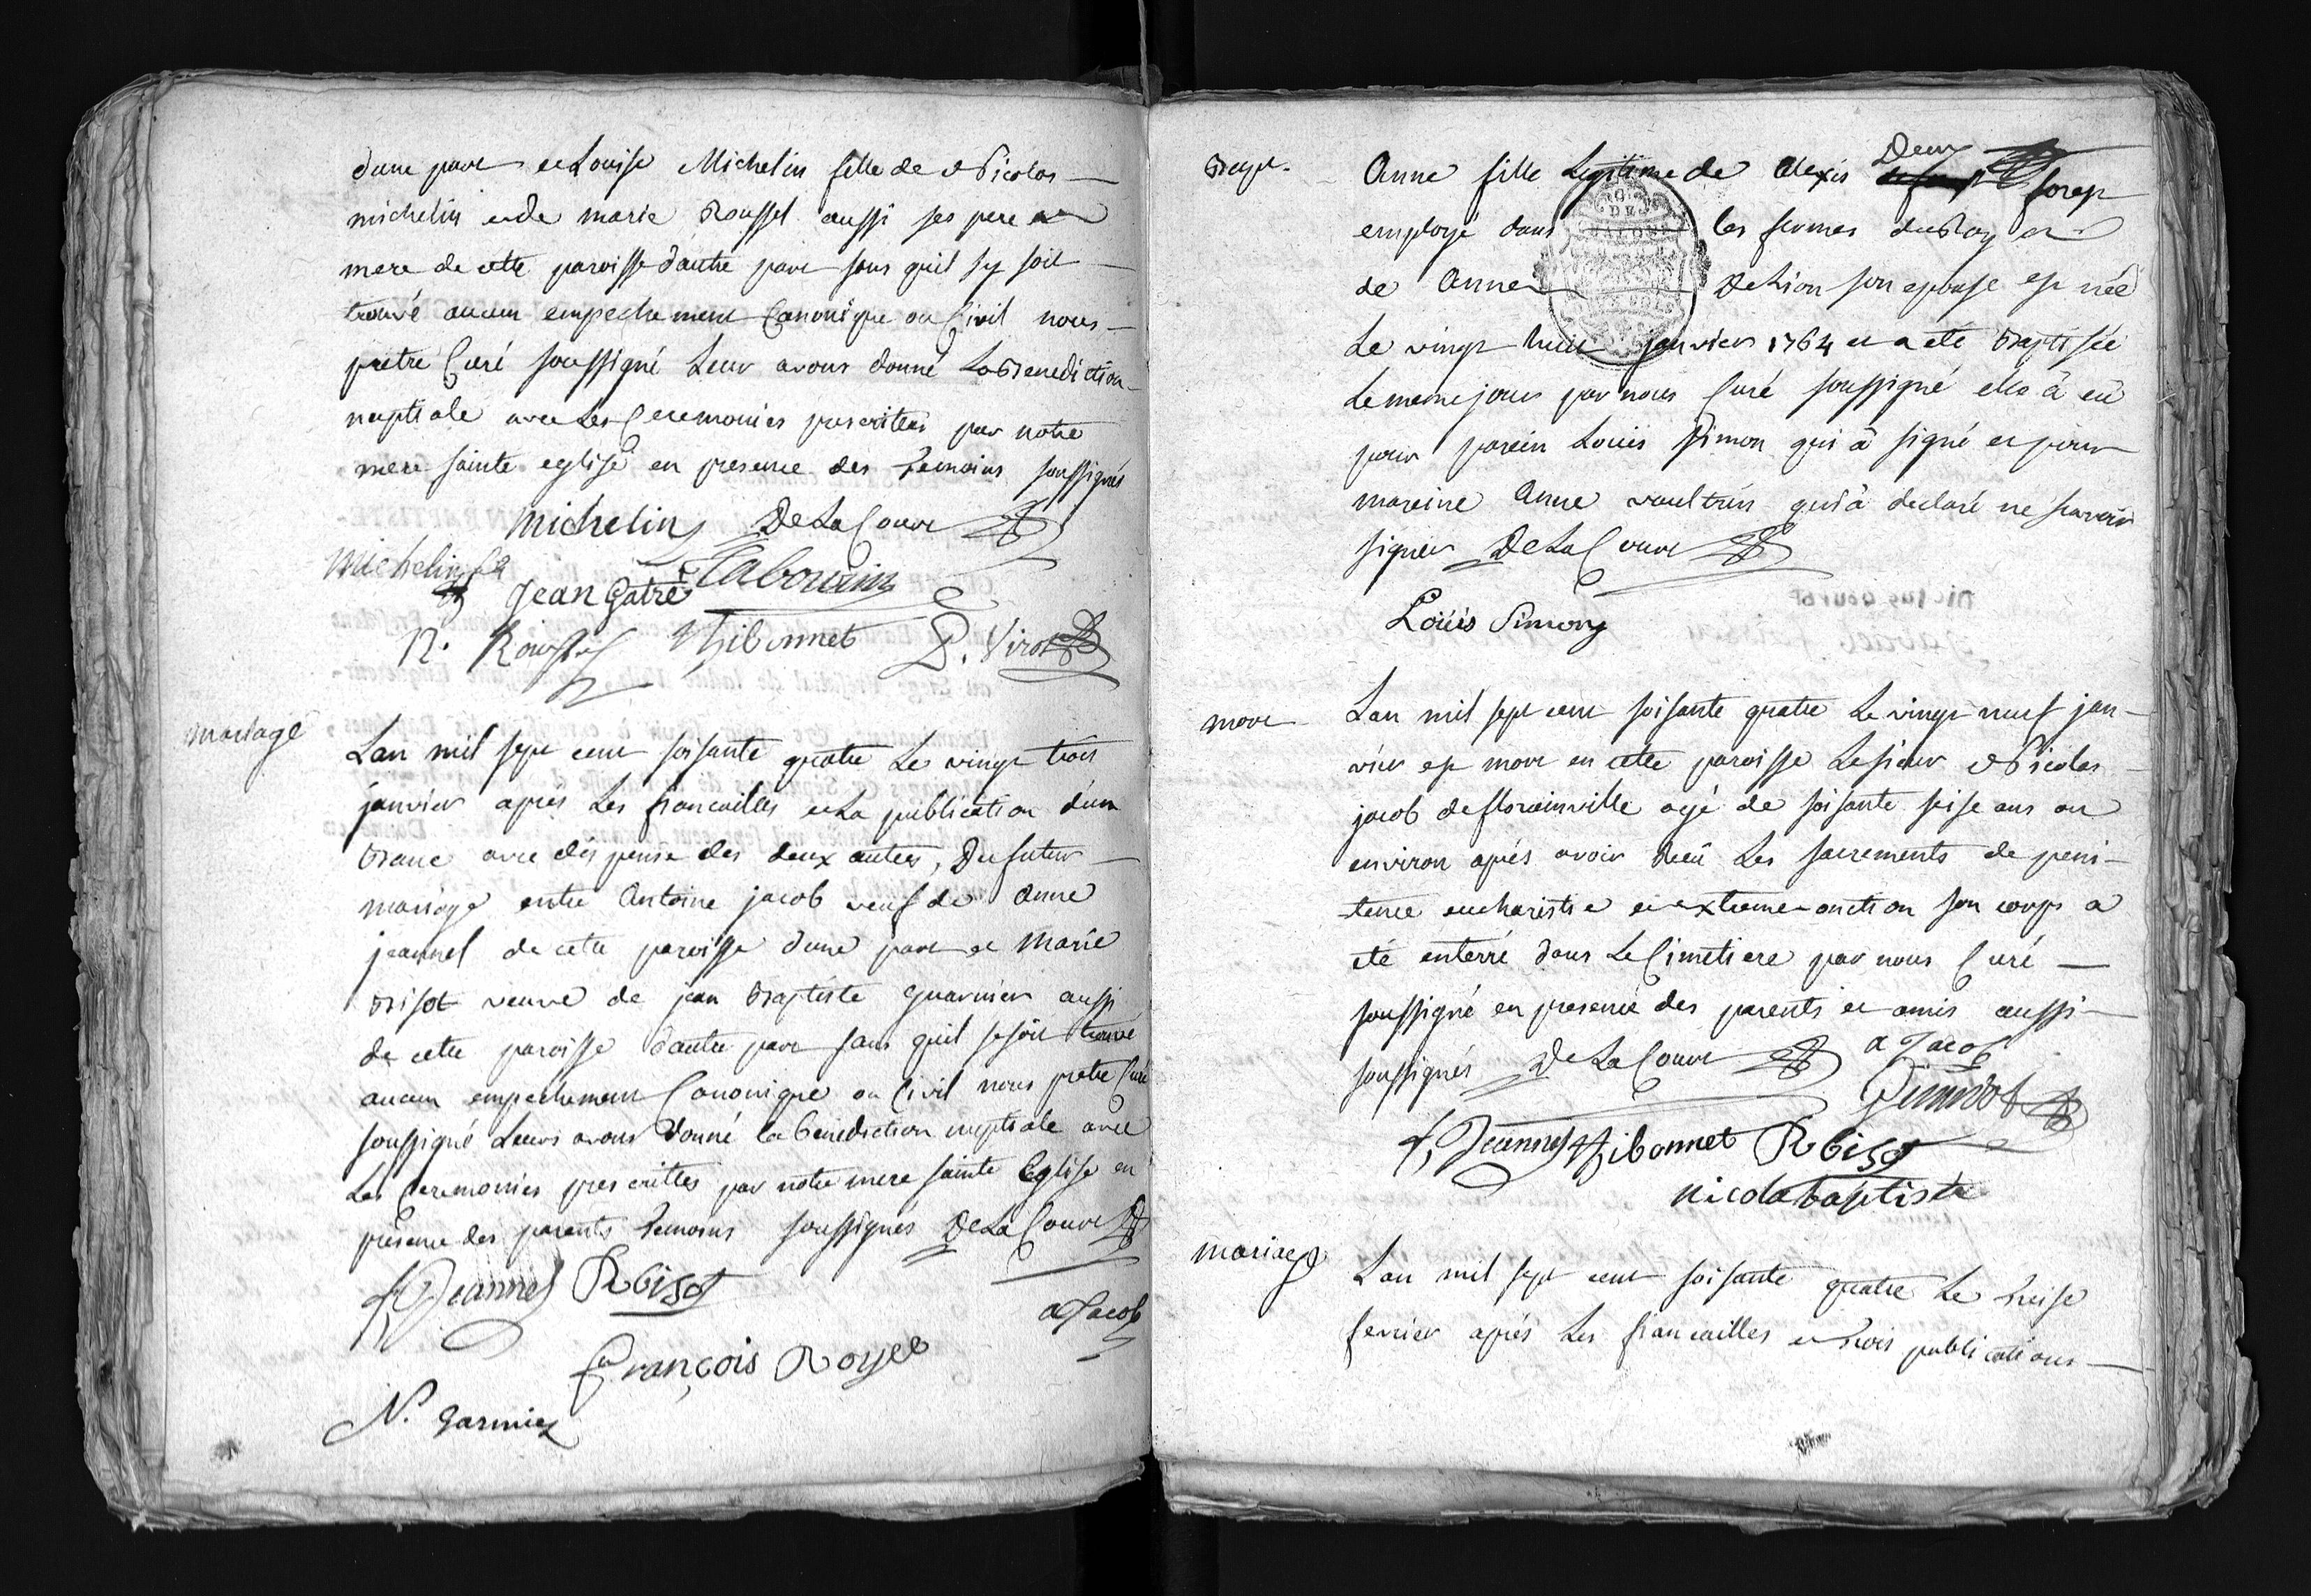 d'une part et Louise Michelin fille de Nicolas
michelin et de marie Roussel aussi ses pere et
mere de cette paroisse d'autre part sans qu'il sy soit
trouvé aucun empechement Canonique ou Civil nous
pretre Curé soussigné Leur avons donné La Benediction
nuptiale avec Les Ceremonies prescrittes par notre
mere sainte eglise en presence des temoins soussignés
Michelin DeLaCour
Michelin
Jean Gatré
N. Thibonnet P. Virot
mariage
Lan mil sept cent soisante quatre Le vingt trois
janvier après Les fiancailles et La publication d'un
Banc avec dispense des deux autres, Du futur
mariage entre Antoine jacob veuf de Anne
jeannel de cette paroisse d'une part et Marie
Bisot veuve de jean Baptiste Guarnier aussi
de cette paroisse d'autre part sans qu'il se soit trouvé
aucun empechement Canonique ou Civil nous pretre Curé
soussigné Leurs avons Donné la benediction nuptiale avec
Les Ceremonies prescrittes par notre mere sainte Eglise en
présence des parents temoins soussignés DeLaCour
Jeannel R bisot
a Jacob
François Royer
N. Garnier
Bapt.
Anne fille Legitime de Alexis
employé dans les fermes du Roy et
de Anne DeLion son epouse est née
Le vingt huit janvier 1764 et a eté Baptisée
Le meme jour par nous Curé soussigné elle à eû
pour parein Louis Simon qui à signé et pour
mareine Anne vaultrin qui à declaré ne scavoir
signer DeLaCour
Loüis Simon
mort
Lan mil sept cent soisante quatre Le vingt neuf jan-
vier est mort en cette paroisse Le sieur Nicolas
jacob de florainville agé de soisante seise ans ou
environ aprés avoir Reçu Les sacrements de peni-
tence eucharistie et extreme-onction son corps a
eté enterré dans Le Cimetiere par nous Curé
soussigné en presence des parents et amis aussi
soussignés DeLaCour a Jacob
Jeannel Thibonnet R bisot
nicola baptiste
mariage
Lan mil sept cent soisante quatre Le treise
fevrier aprés Les fiancailles et trois publications